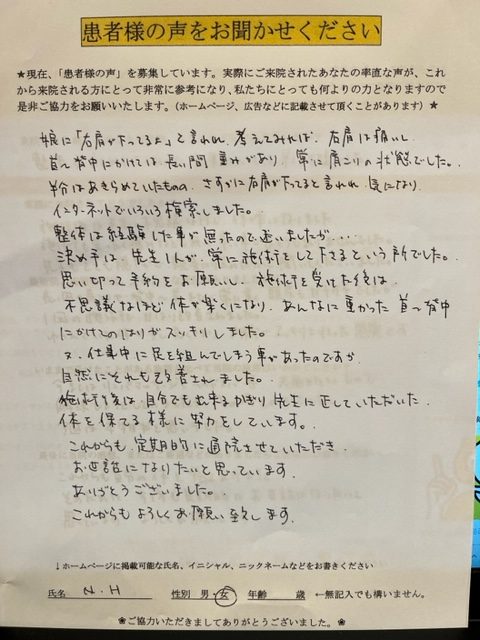 患者様の声をお聞かせください
★現在、「患者様の声」を募集しています。実際にご来院されたあなたの率直な声が、これ
から来院される方にとって非常に参考になり、私たちにとっても何よりの力となりますので
是非ご協力をお願いいたします。(ホームページ、広告などに記載させて頂くことがあります) ★
娘に「右肩が下ってるよ」と言われ、考えてみれば、右肩は痛いし
首〜背中にかけては長い間重みがあり常に肩こりの状態でした。
半分はあきらめていたものの、さすがに右肩が下ってると言われ、気になり
インターネットでいろいろ検索しました。
整体は経験した事が無ったので迷いましたが…
決め手は、先生1人が、常に施術をして下さるという所でした。
思い切って予約をお願いし、施術を受けた後は、
不思議なほど体が楽になり、あんなに重かった首〜背中
にかけてのはりがスッキリしました。
又、仕事中に足を組んでしまう事があったのですが
自然にそれも改善されました。
施術後は、自分でも出来るかぎり先生に正していただいた
体を保てる様に努力をしています。
これからも定期的に通院させていただき、
お世話になりたいと思っています。
ありがとうございました。
これからもよろしくお願い致します。
↓ホームページに掲載可能な氏名、イニシャル、ニックネームなどをお書きください
氏名 N.H 性別 男・女 年齢 歳 ←無記入でも構いません。
❀ご協力いただきましてありがとうございました。❀